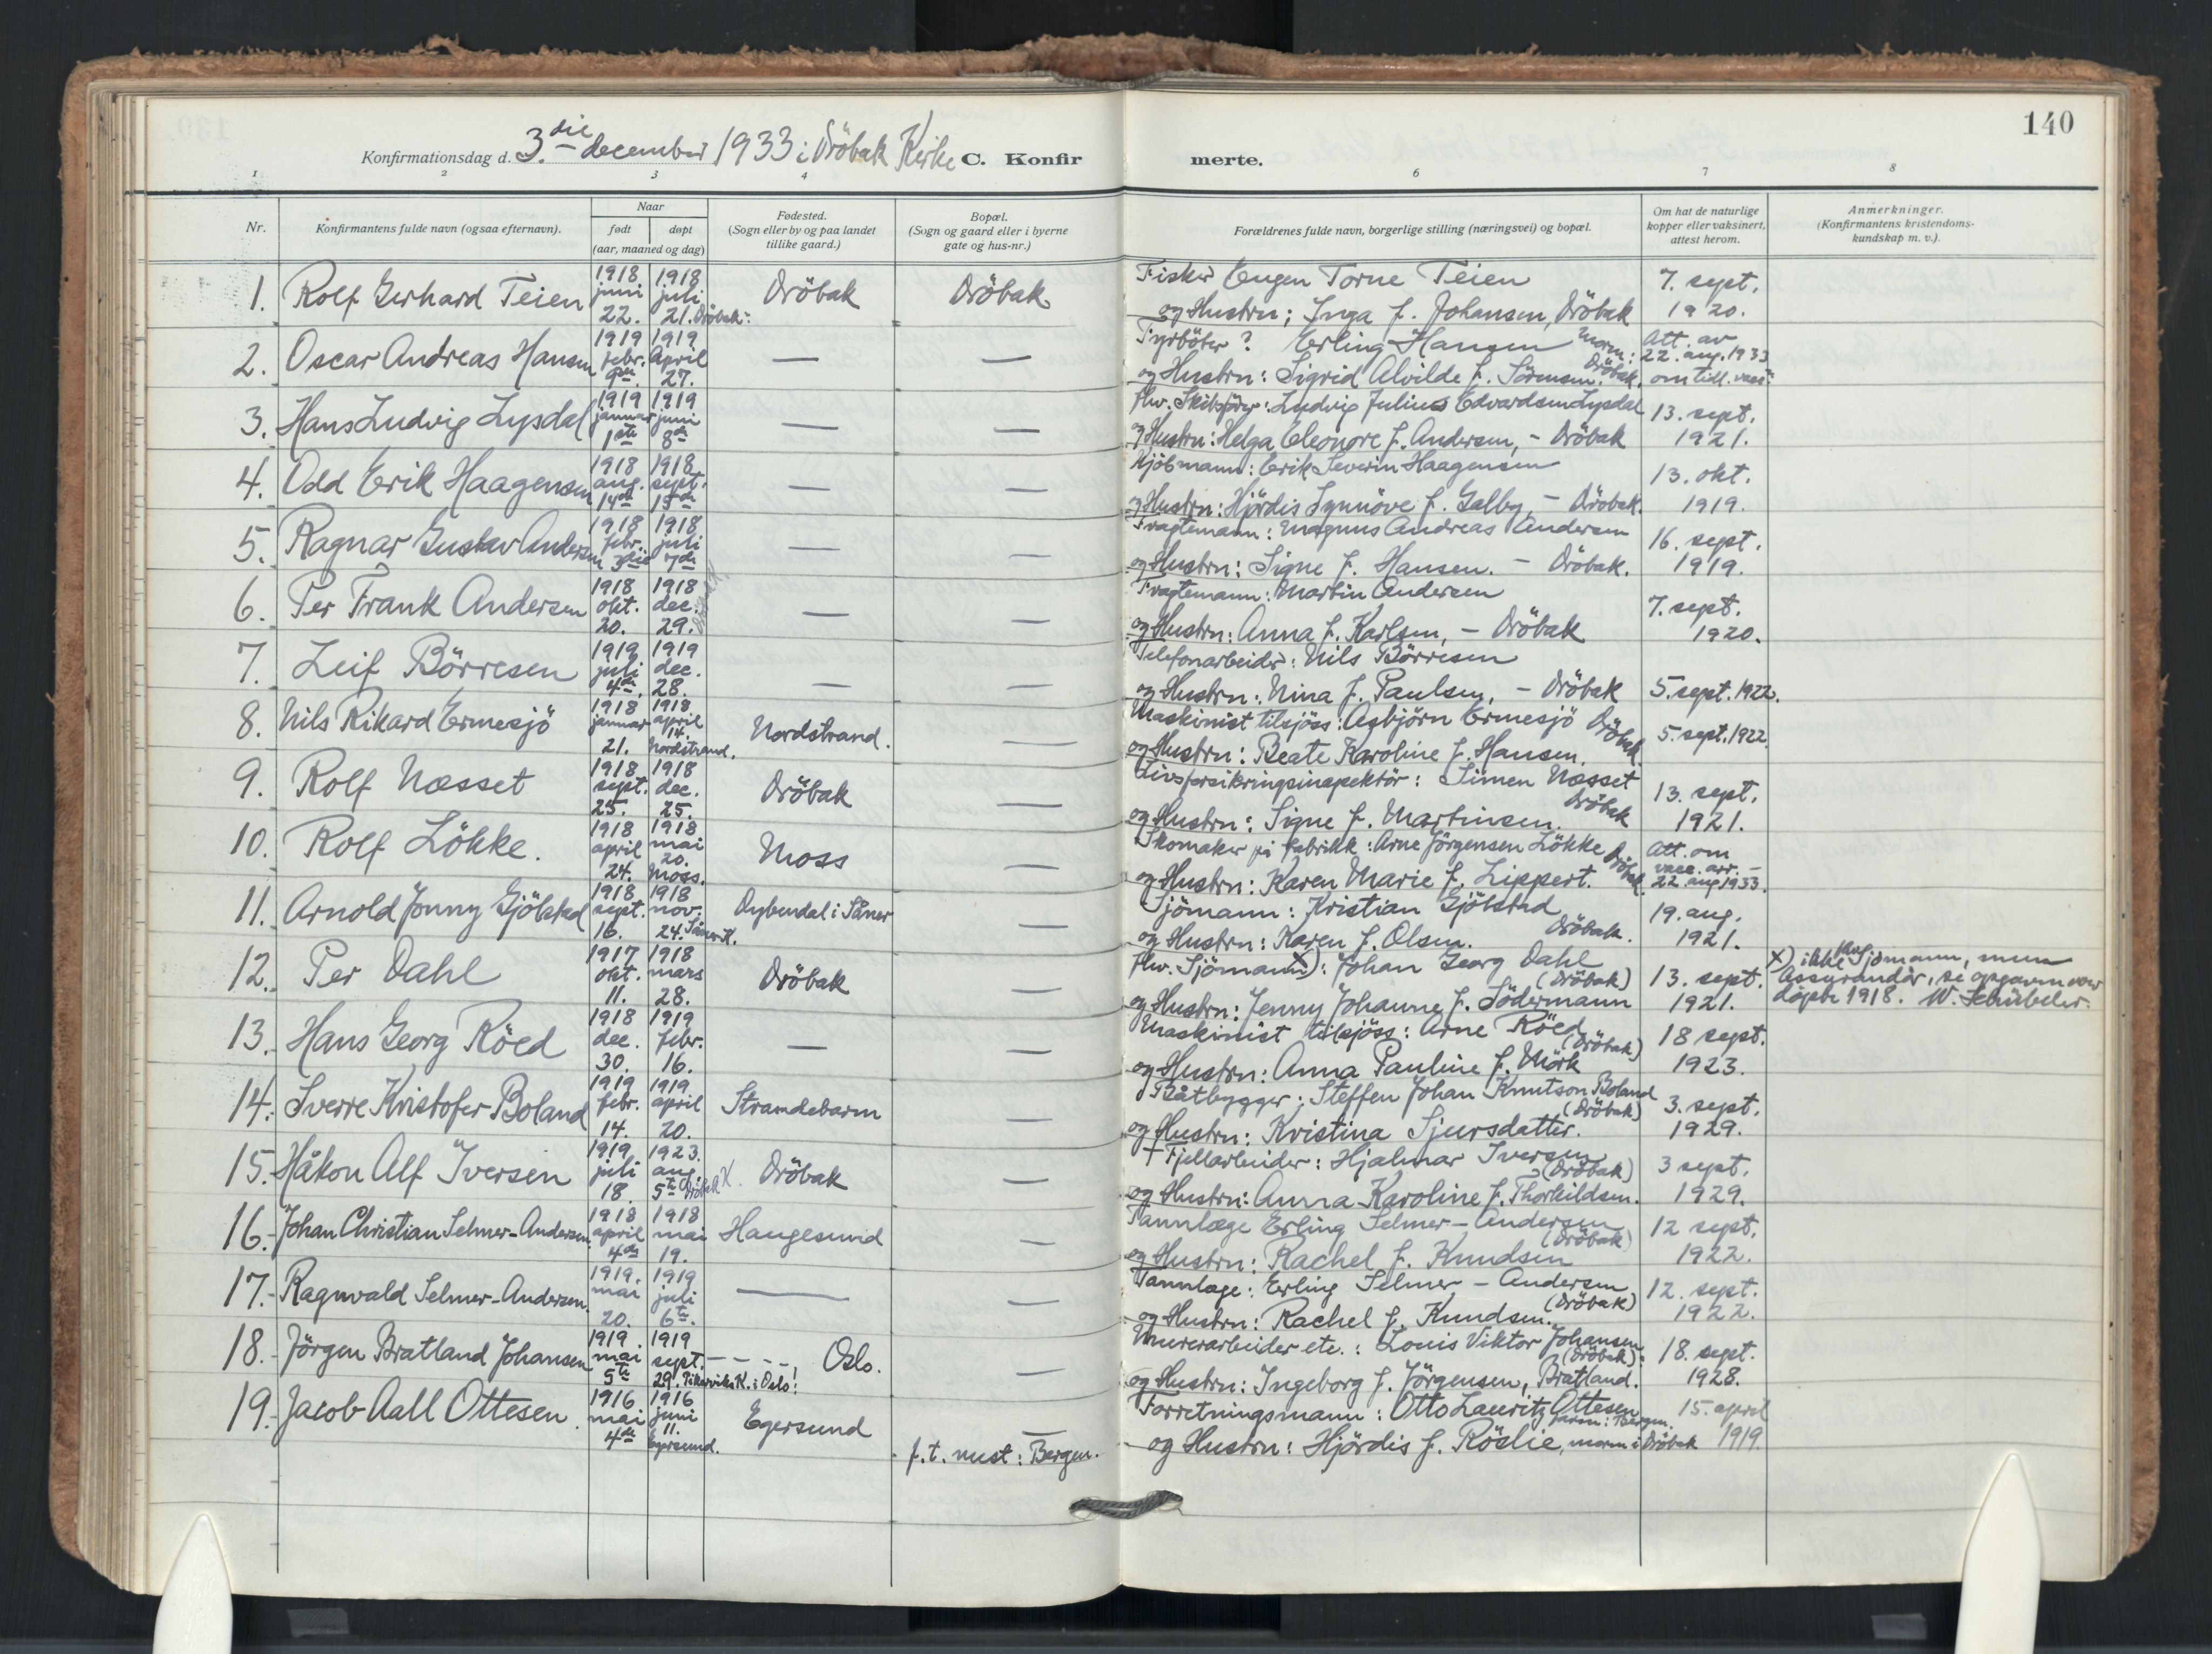 140
Konfirmationsdag d. 3.die december 1933 i Dröbak Kirke C. Konfir merte.
1 2 3 4 6 7 8
Nr.
Konfirmantens fulde navn (ogsaa efternavn).
Naar
født døpt
(aar, maaned og dag)
Fødested.
(Sogn eller by og paa landet
tillike gaard.)
Bopæl.
(Sogn og gaard eller i byerne
gate og hus-nr.)
Forældrenes fulde navn, borgerlige stilling (næringsvei) og bopæl.
Om hat de naturlige
kopper eller vaksinert,
attest herom.
Anmerkninger.
(Konfirmantens kristendoms-
kundskap m. v.).
1. Rolf Gerhard Teien 1918 juni 22. 1918 juli 21. Dröbak: Dröbak Dröbak
Fisker Eugen Torne Teien
og Hustru; Inga f. Johansen, Dröbak 7. sept. 1920.
2. Oscar Andreas Hansen 1919 febr. 9de 1919 April 27. — —
Fyrböter ? Erling Hansen
og Hustru: Sigrid Alvilde f. Sörensen. morn: Dröbak. Att. av 22. aug. 1933 om tidl. vacc.
3. Hans Ludvig Lysdal 1919 januar 1ste 1919 juni 8de — —
fhv. Skibsförer: Ludvig Julius Edvardsen Lysdal
og Hustru: Helga Eleonore f. Andersen, - Dröbak 13. sept. 1921.
4. Odd Erik Haagensen 1918 aug. 14de 1918 sept. 15de — —
Kjöbmann: Erik Severin Haagensen
og Hustru: Hjördis Synnöve f. Galby, - Dröbak. 13. okt. 1919.
5. Ragnar Gustav Andersen 1918 febr. 3die 1918 juli 7de — —
Fragtemann: Magnus Andreas Andersen
og Hustru: Signe f. Hansen. - Dröbak. 16. sept. 1919.
6. Per Frank Andersen 1918 okt. 20. 1918 dec. 29. — —
Fragtemann: Martin Andersen
og Hustru: Anna f. Karlsen, - Dröbak 7. sept. 1920.
7. Leif Börresen 1919 juli 4de 1919 dec. 28. — —
Telefonarbeider: Nils Börresen
og Hustru: Nina f. Paulsen, - Dröbak 5. sept. 1922.
8. Nils Rikard Ermesjö 1918 januar 21. 1918 april 14. Nordstrand. Nordstrand. —
Maskinist tilsjöss: Asbjörn Ermesjö Dröbak
og Hustru: Beate Karoline f. Hansen. 5. sept. 1922.
9. Rolf Næsset 1918 sept. 25. 1918 dec. 25. Dröbak —
Livsforsikringsinspektör: Simen Næsset
og Hustru: Signe f. Martinsen. Dröbak 13. sept. 1921.
10. Rolf Lökke. 1918 april 24. 1918 mai 20. Moss. Moss —
Skomaker på fabrikk: Arne Jörgensen Lökke
og Hustru: Karen Marie f. Lippert. Dröbak Att. om vacc. arr. - 22. aug 1933.
11. Arnold Jonny Gjölstad 1918 sept. 16. 1918 nov. 24. Såner K. Dybendal i Såner —
Sjömann: Kristian Gjölstad
og Hustru: Karen f. Olsen. Dröbak. 19. aug. 1921.
12. Per Dahl 1917 okt. 11. 1918 mars 28. Dröbak —
fhv. Sjömann X): Johan Georg Dahl
og Hustru: Jenny Johanne f. Södermann (Dröbak) 13. sept. 1921.
X) ikke fhv. Sjömann, men
Assurandör, se opgaven over
döpte 1918. W. Schübeler.
13. Hans Georg Röed 1918 dec. 30. 1919 febr. 16. — —
Maskinist tilsjöss: Arne Röed
og Hustru: Anna Pauline f. Mörk (Dröbak) 18 sept. 1923.
14. Sverre Kristofer Boland 1919 febr. 14. 1919 april 20. Strandebarm —
Båtbygger: Steffen Johan Knutson Boland
og Hustru: Kristina Sjursdatter. (Dröbak) 3. sept. 1929.
15. Håkon Alf Iversen 1919 juli 18. 1923. aug. 5te Dröbak K. Dröbak —
+ Fjellarbeider: Hjalmar Iversen
og Hustru: Anna Karoline f. Thorkildsen. (Dröbak) 3 sept. 1929.
16. Johan Christian Selmer-Andersen. 1918 april 4de 1918 mai 19. Haugesund —
Tannlæge Erling Selmer-Andersen
og Hustru: Rachel f. Knudsen (Dröbak) 12 sept. 1922.
17. Ragnvald Selmer-Andersen. 1919. mai 20. 1919 juli 6te. — —
Tannlæge: Erling Selmer - Andersen
og Hustru: Rachel f. Knudsen. (Dröbak) 12. sept. 1922.
18. Jörgen Bratland Johansen 1919. mai 5te 1919 sept. 29. K. i Oslo! Oslo. —
Murerarbeider etc.: Louis Viktor Johansen
og Hustru: Ingeborg f. Jörgensen, Bratland. (Dröbak): 18. sept. 1928.
19. Jacob Aall Ottesen. 1916 mai 4de 1916 juni 11. Egersund. Egersund —
f. t. nust: Bergen.
Forretningsmann: Otto Lauritz Ottesen farm: Bergen.
og Hustru: Hjördis f. Röslie, morn i Dröbak 15. april 1919.